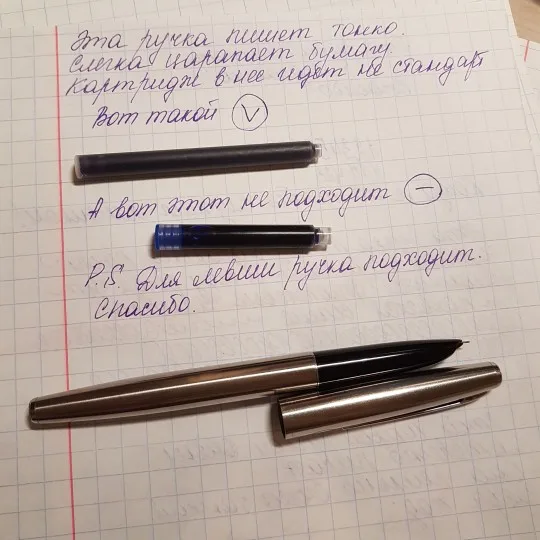 Эта ручка пишет тонко.
Слегка царапает бумагу.
Картридж в нее идет не стандарт
Вот такой V
А вот этот не подходит −
P.S. Для левши ручка подходит.
Спасибо.